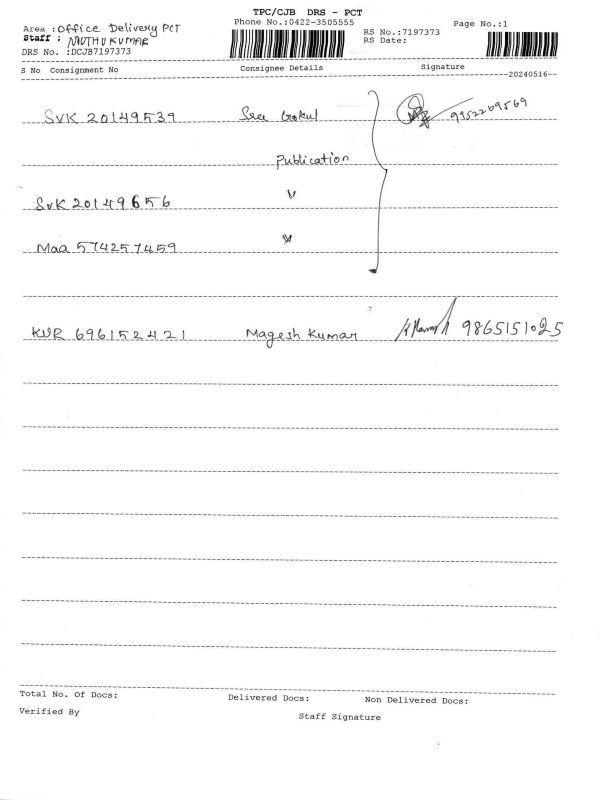 TPC/CJB DRS - PCT
Area : Office Delivery PCT Phone No.:0422-3505555 Page No.:1
Staff : MUTHUKUMAR RS No.:7197373
DRS No. :DCJB7197373 RS Date:
S No Consignment No Consignee Details Signature
20240516
SVK 20149539 Sree Gokul 9952269569
Publication
SVK 20149656 "
Maa 574257459 "
KVR 696152421 Magesh Kumar 9865151025
Total No. Of Docs: Delivered Docs: Non Delivered Docs:
Verified By Staff Signature